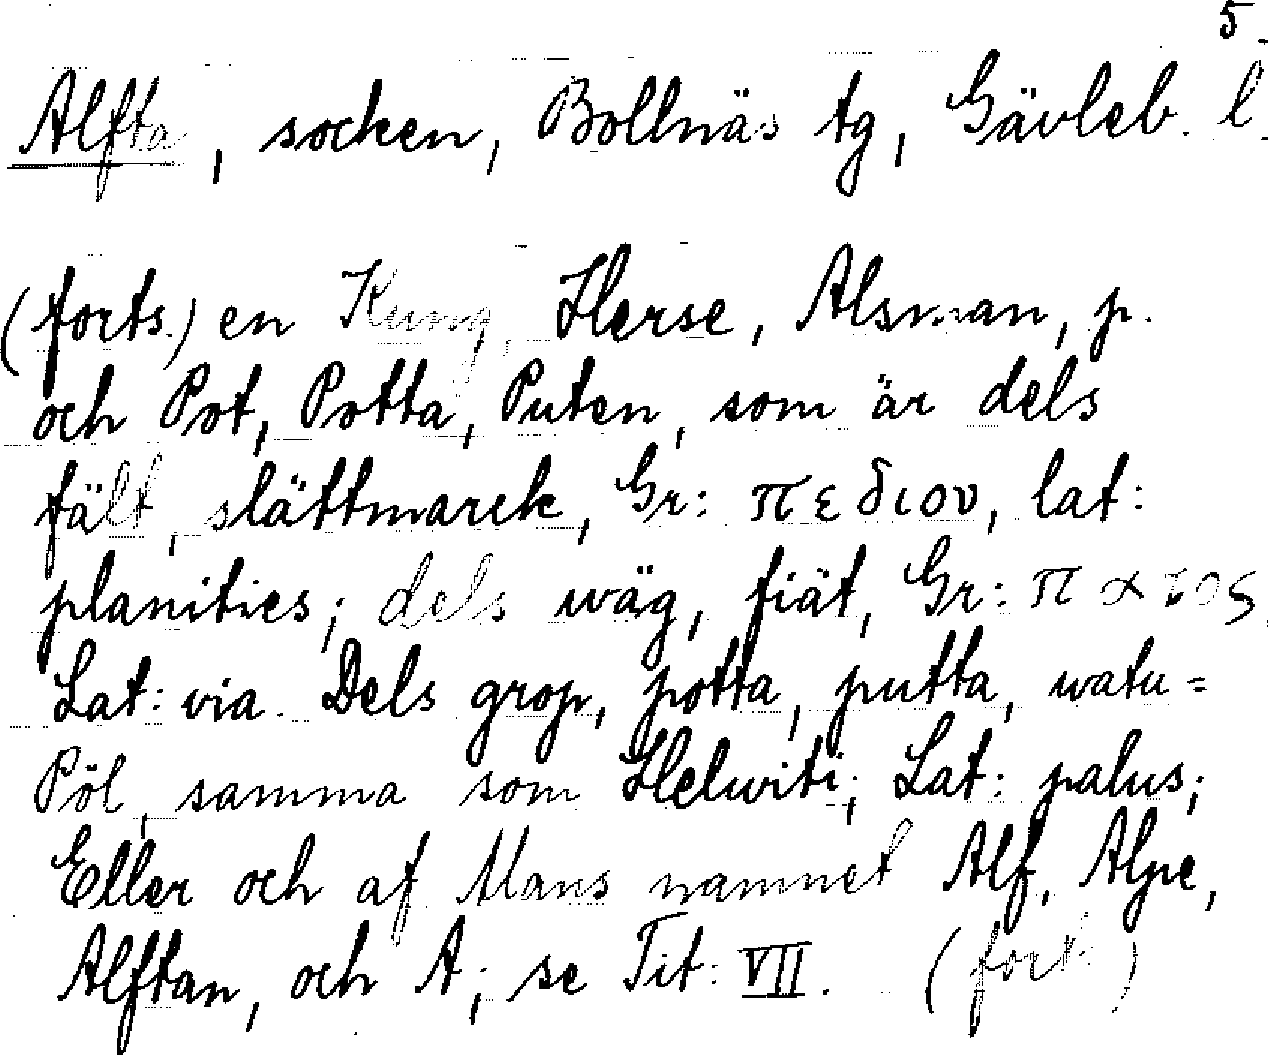 5.
Alfta, socken, Bollnäs tg, Gävleb. l.
(forts.) en Kung, Herse, Alsman, p.
och Pot, Potta, Puten, som är dels
fält, slättmarck, Gr: πεδιον, lat:
planities; dels wäg, fiät, Gr: πατος,
Lat: via. Dels grop, potta, putta, watu=
Pöl, samma som Helwiti; Lat: palus;
Eller och af Mans namnet Alf, Alpe,
Alftan, och A; se Tit: VII. (forts.)